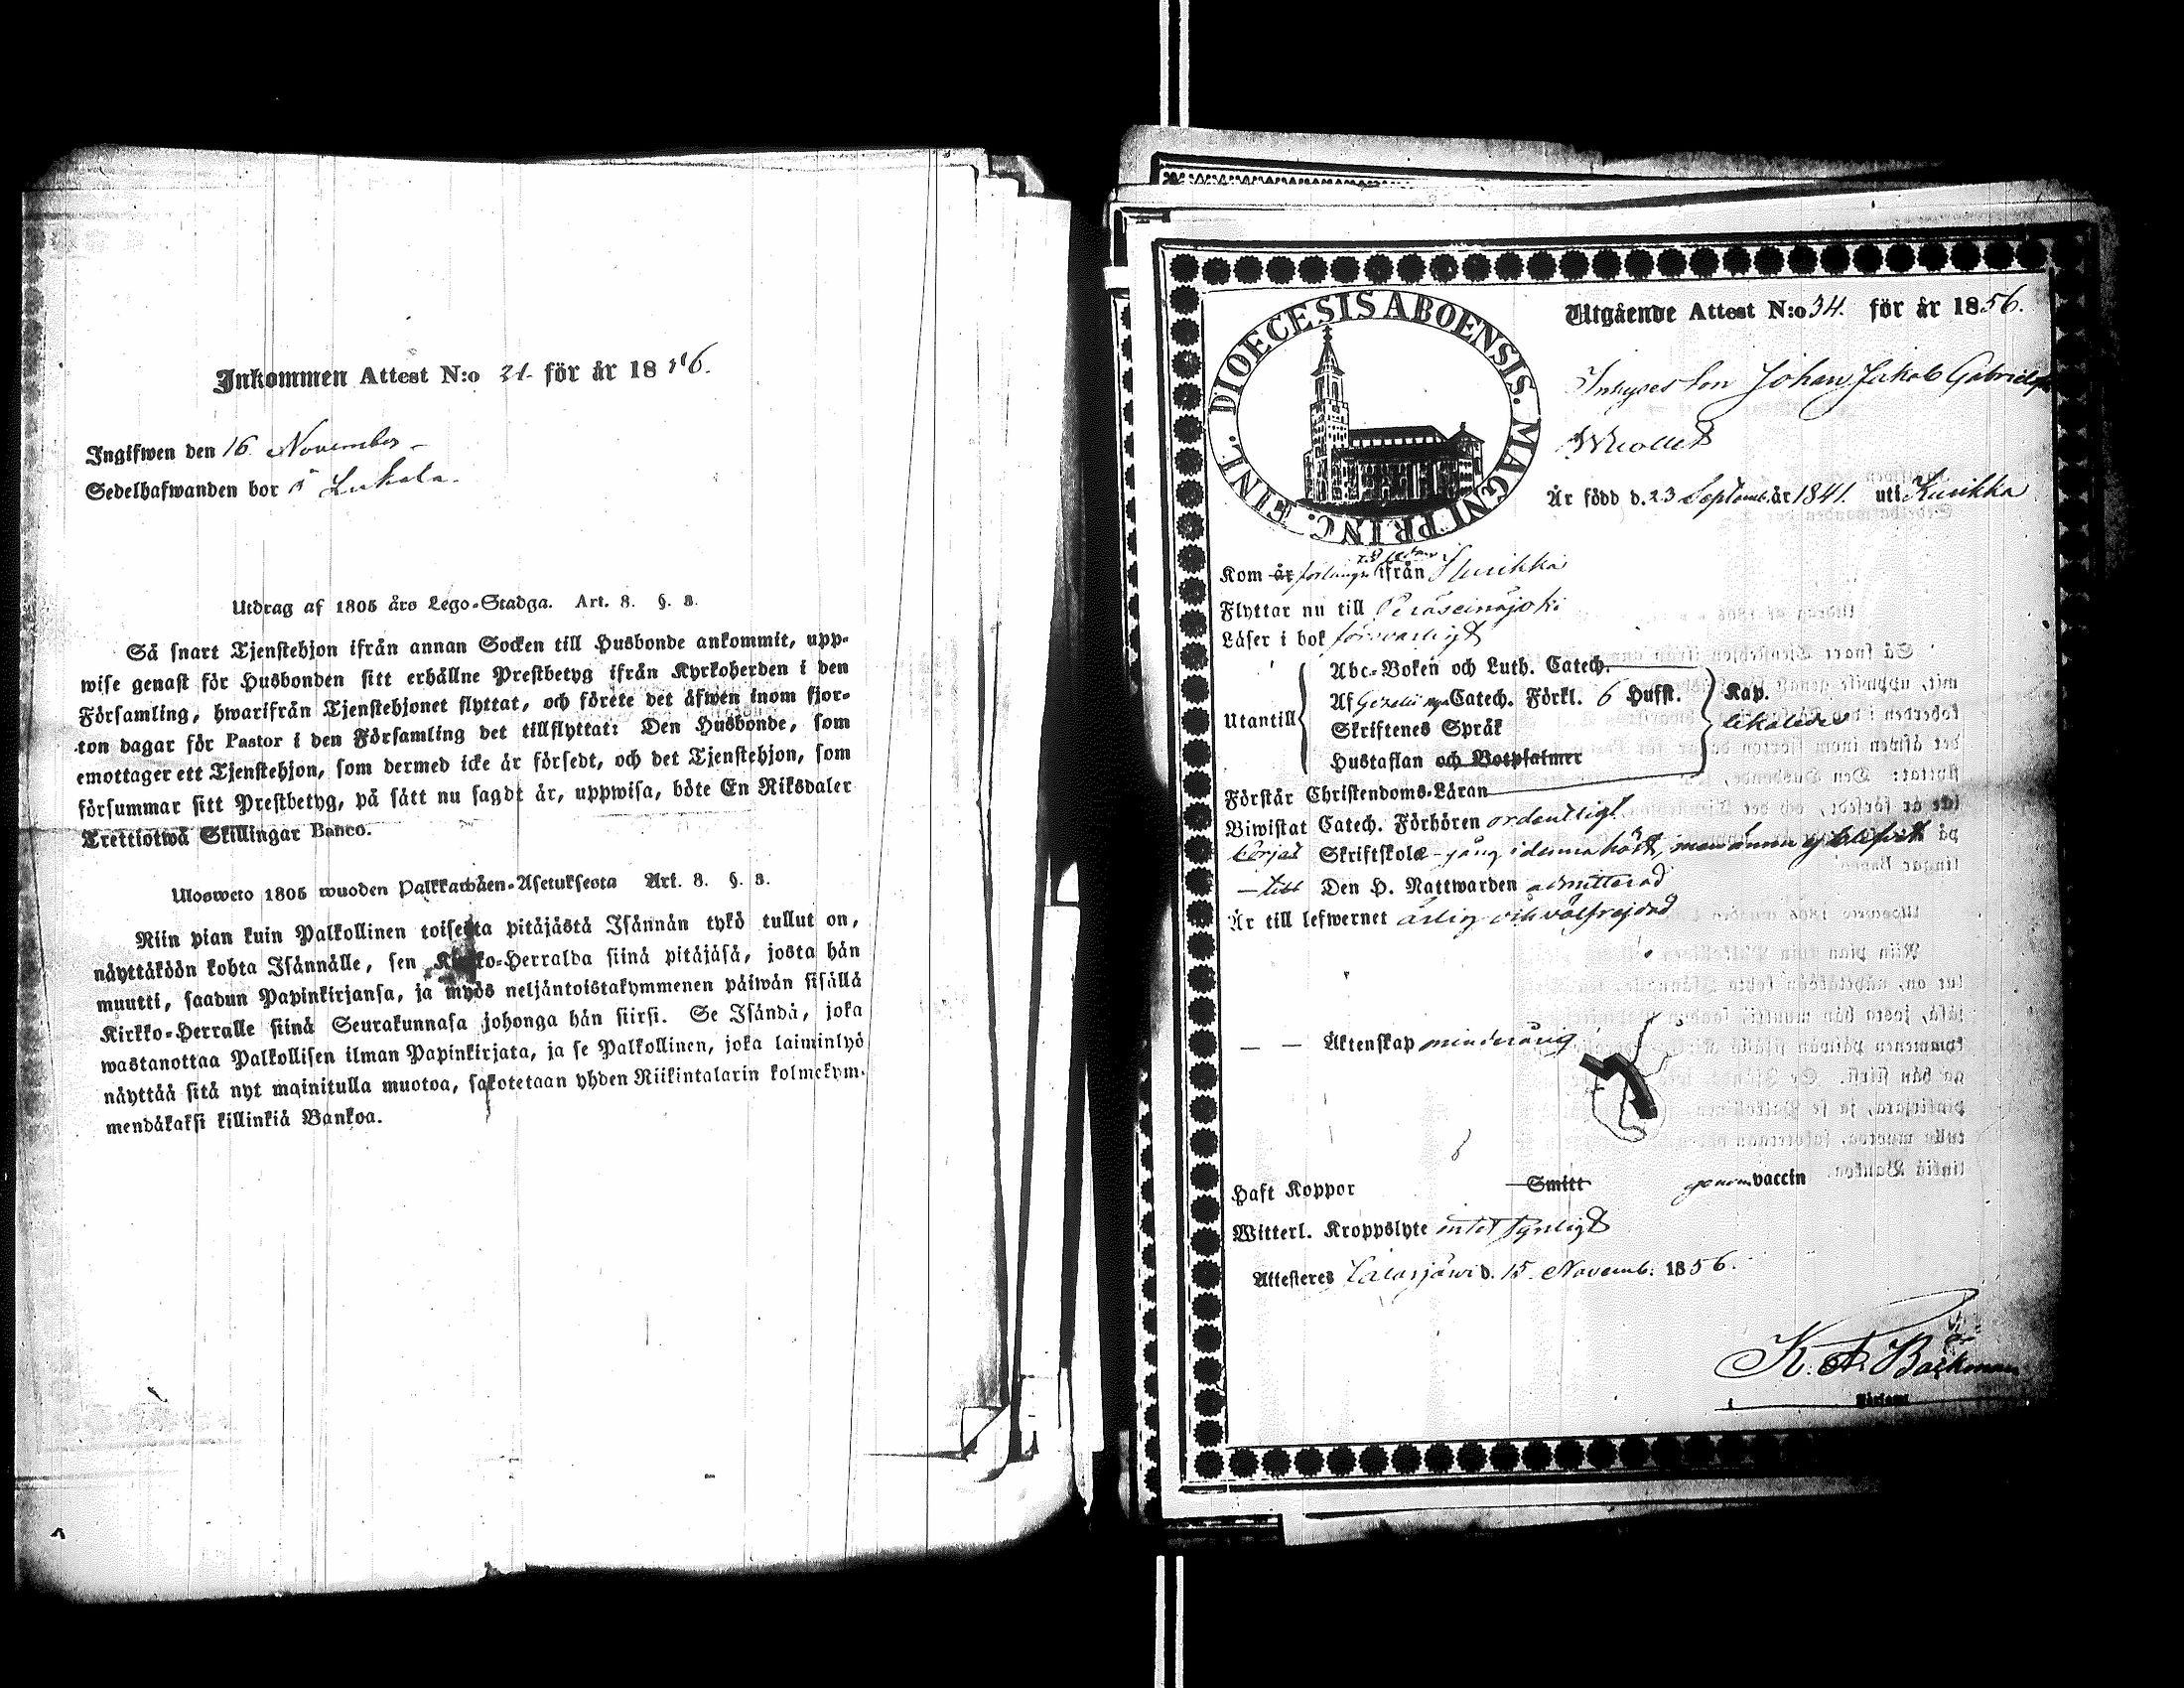 Inkommen Attest N:o 31. för år 1856.
Ingifwen den 16 November
Sedelhafwanden bor å Lukala.
Utdrag af 1805 års Lego-Stadga. Art. 8. §. 3.
Så snart Tjenstehjon ifrån annan Socken till Husbonde ankommit, upp-
wise genast för Husbonden sitt erhållne Prestbetyg ifrån Kyrkoherden i den
Församling, hwarifrån Tjenstehjonet flyttat, och förete det äfwen inom fjor-
ton dagar för Pastor i den Församling det tillflyttat: Den Husbonde, som
emottager ett Tjenstehjon, som dermed icke är försedt, och det Tjenstehjon, som
försummar sitt Prestbetyg, på sätt nu sagdt är, uppwisa, böte En Riksdaler
Trettiotwå Skillingar Banco.
Ulosweto 1805 wuoden Palkkawäen-Asetuksesta Art. 8. §. 3.
Niin pian kuin Palkollinen toisesta pitäjästä Isännän tykö tullut on,
näyttäköön kohta Isännälle, sen Kirkko-Herralda siinä pitäjäsä, josta hän
muutti, saadun Papinkirjansa, ja myös neljäntoistakymmenen päiwän sisällä
Kirkko-Herralle siinä Seurakunnasa johonga hän siirsi. Se Isändä, joka
wastanottaa Palkollisen ilman Papinkirjata, ja se Palkollinen, joka laiminlyö
näyttää sitä nyt mainitulla muotoa, sakotetaan yhden Riikintalarin kolmekym-
mendäkaksi killinkiä Bankoa.
DIOECESIS ABOENSIS. MAGNI PRINC. FINL.
Utgående Attest N:o 34. för år 1856.
Inhyses son Johan Jakob Gabrielss
Är född d. 23 Septemb. år 1841. uti Kurikka
Kom år förlänge sedan ifrån Kurikka
Flyttar nu till Peräseinäjoki
Läser i bok försvarligt
Utantill
Abc-Boken och Luth. Catech.
Af Gezelii Catech. Förkl. 6 Hufst. Kap.
Skriftenes Språk
Hustaflan och Botpsalmer
Förstår Christendoms-Läran
Biwistat Catech. Förhören ordentligt
börjat Skriftskole-gång i denna höst, men ännu ej
Den H. Nattwarden admitterad
Är till lefwernet ärlig och välfrejdad
— — Äktenskap minderårig
Haft Koppor Smitt genom vaccin
Witterl. Kroppslyte intet synligt
Attesteres Ilmajoki d. 15 Novemb. 1856.
K. A. Bäckman